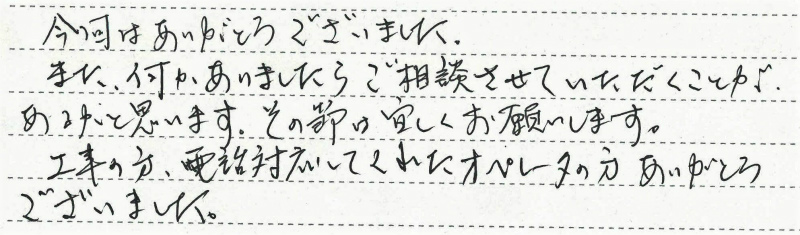 今回はありがとうございました。
また、何かありましたらご相談させていただくことが、
あるかと思います。その節は宜しくお願いします。
工事の方、電話対応してくれたオペレータの方ありがとう
ございました。